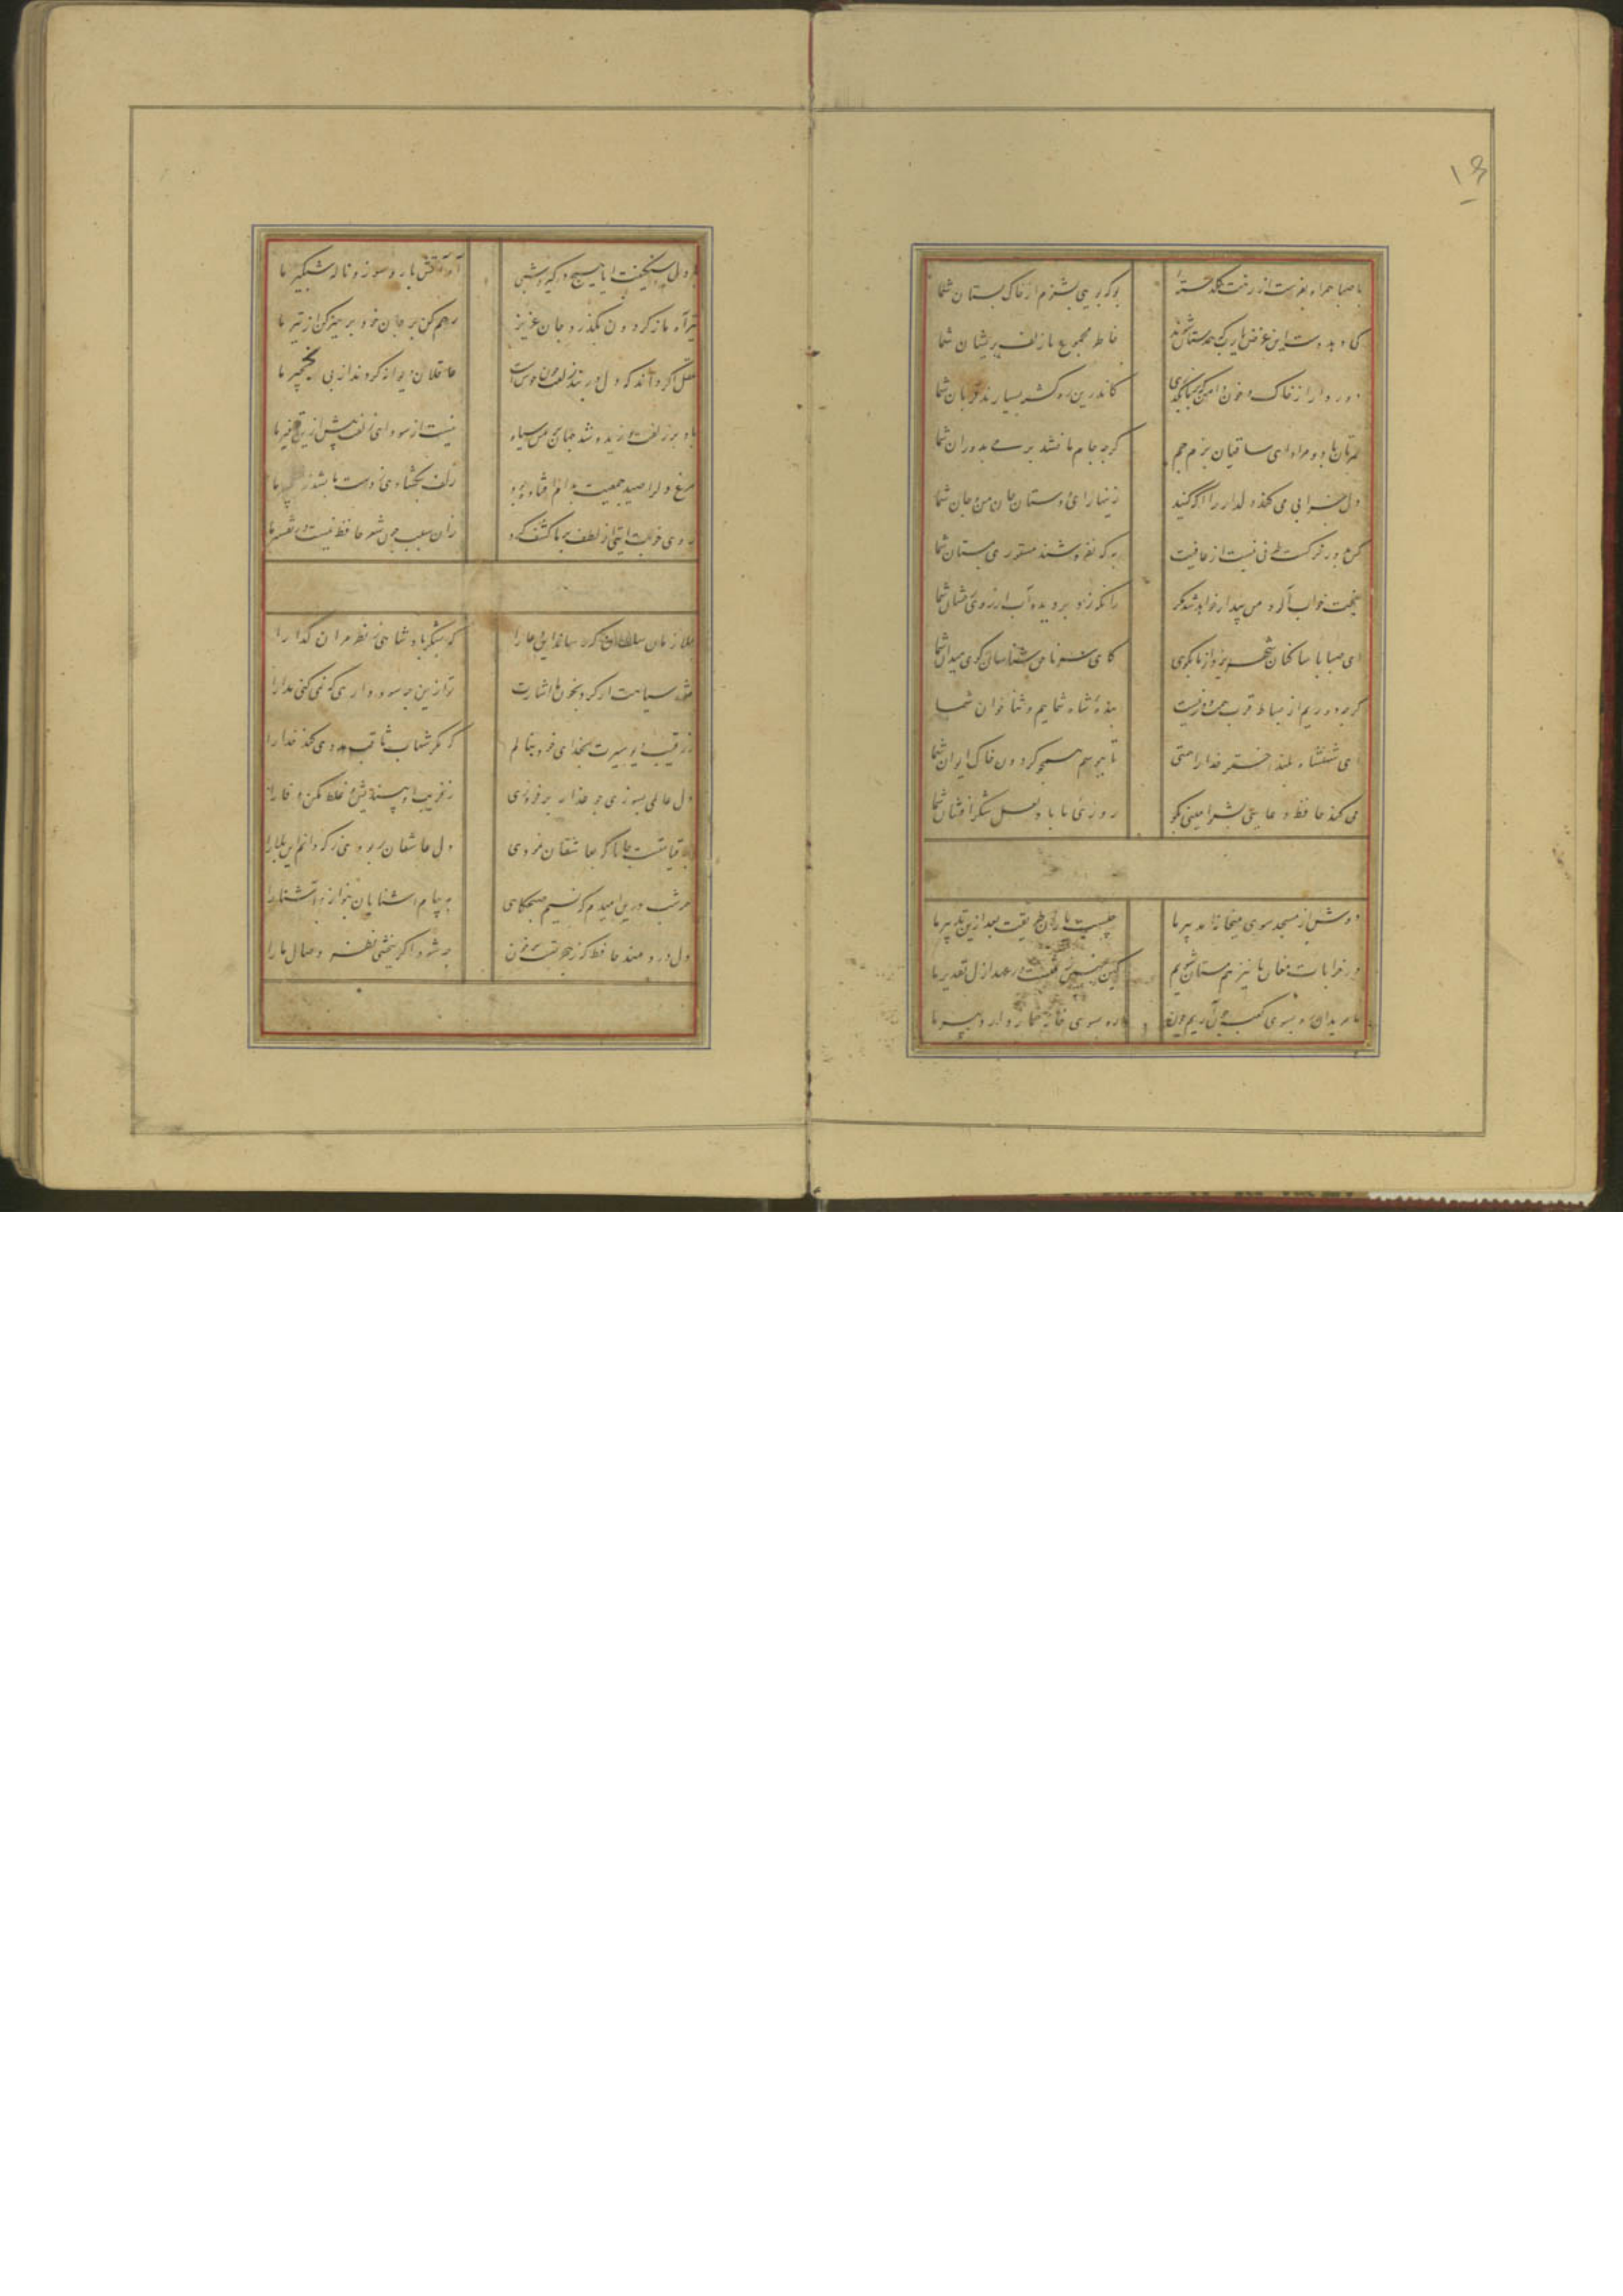 ۱۳
با صبا همراه بفرست از رخت گلدسته
بو که بویی بشنوم از خاک بستان شما
کی دهد دست این غرض یارب که همدستان شوند
خاطر مجموع ما زلف پریشان شما
دور دار از خاک و خون دامن چو بر ما بگذری
کاندرین ره کشته بسیارند قربان شما
عمرتان باد و مراد ای ساقیان بزم جم
گرچه جام ما نشد پر می بدوران شما
دل خرابی می کند دلدار را آگه کنید
زینهار ای دوستان جان من و جان شما
کس بدور نرگست طرفی نبست از عافیت
به که نفروشند مستوری بمستان شما
بخت خواب آلود من بیدار خواهد شد مگر
زانکه زد بر دیده آب از روی رخشان شما
ای صبا با ساکنان شهر یزد از ما بگوی
کای سر ناحق شناسان گوی میدان شما
گرچه دوریم از بساط قرب همت دور نیست
بنده شاه شماییم و ثناخوان شما
ای شهنشاه بلند اختر خدا را همتی
تا ببوسم همچو گردون خاک ایوان شما
می کند حافظ دعایی بشنو آمینی بگو
روزی ما باد لعل شکر افشان شما
دوش از مسجد سوی میخانه آمد پیر ما
چیست یاران طریقت بعد ازین تدبیر ما
در خرابات مغان ما نیز همدستان شویم
کین چنین رفتست در عهد ازل تقدیر ما
ما مریدان رو بسوی کعبه چون آریم چون
رو بسوی خانه خمار دارد پیر ما
با دل سنگینت آیا هیچ درگیرد شبی
آه آتش بار و سوز و ناله شبگیر ما
تیر آه ما ز گردون بگذرد جان عزیز
رحم کن بر جان خود پرهیز کن از تیر ما
عقل اگر داند که دل در بند زلفت چون خوش است
عاقلان دیوانه گردند از پی زنجیر ما
باد بر زلف تو زید و شد جهان بر من سیاه
نیست از سودای زلفت بیش ازین توفیر ما
مرغ دل را صید جمعیت بدام افتاده بود
زلف بگشادی ز دست ما بشد نخجیر ما
روی خوبت آیتی از لطف بر ما کشف کرد
زان سبب چون شعر حافظ نیست در تفسیر ما
بملازمان سلطان که رساند این دعا را
که بشکر پادشاهی ز نظر مران گدا را
مژه سیاهت ار کرد بخون ما اشارت
ز رقیب دیو سیرت بخدای خود پناهم
که مگر شهاب ثاقب مددی کند خدا را
دل عالمی بسوزی چو عذار بر فروزی
ز فریب او بیندیش و غلط مکن نگارا
چه قیامتست جانا که بعاشقان نمودی
همه شب درین امیدم که نسیم صبحگاهی
به پیام آشنایان بنوازد آشنا را